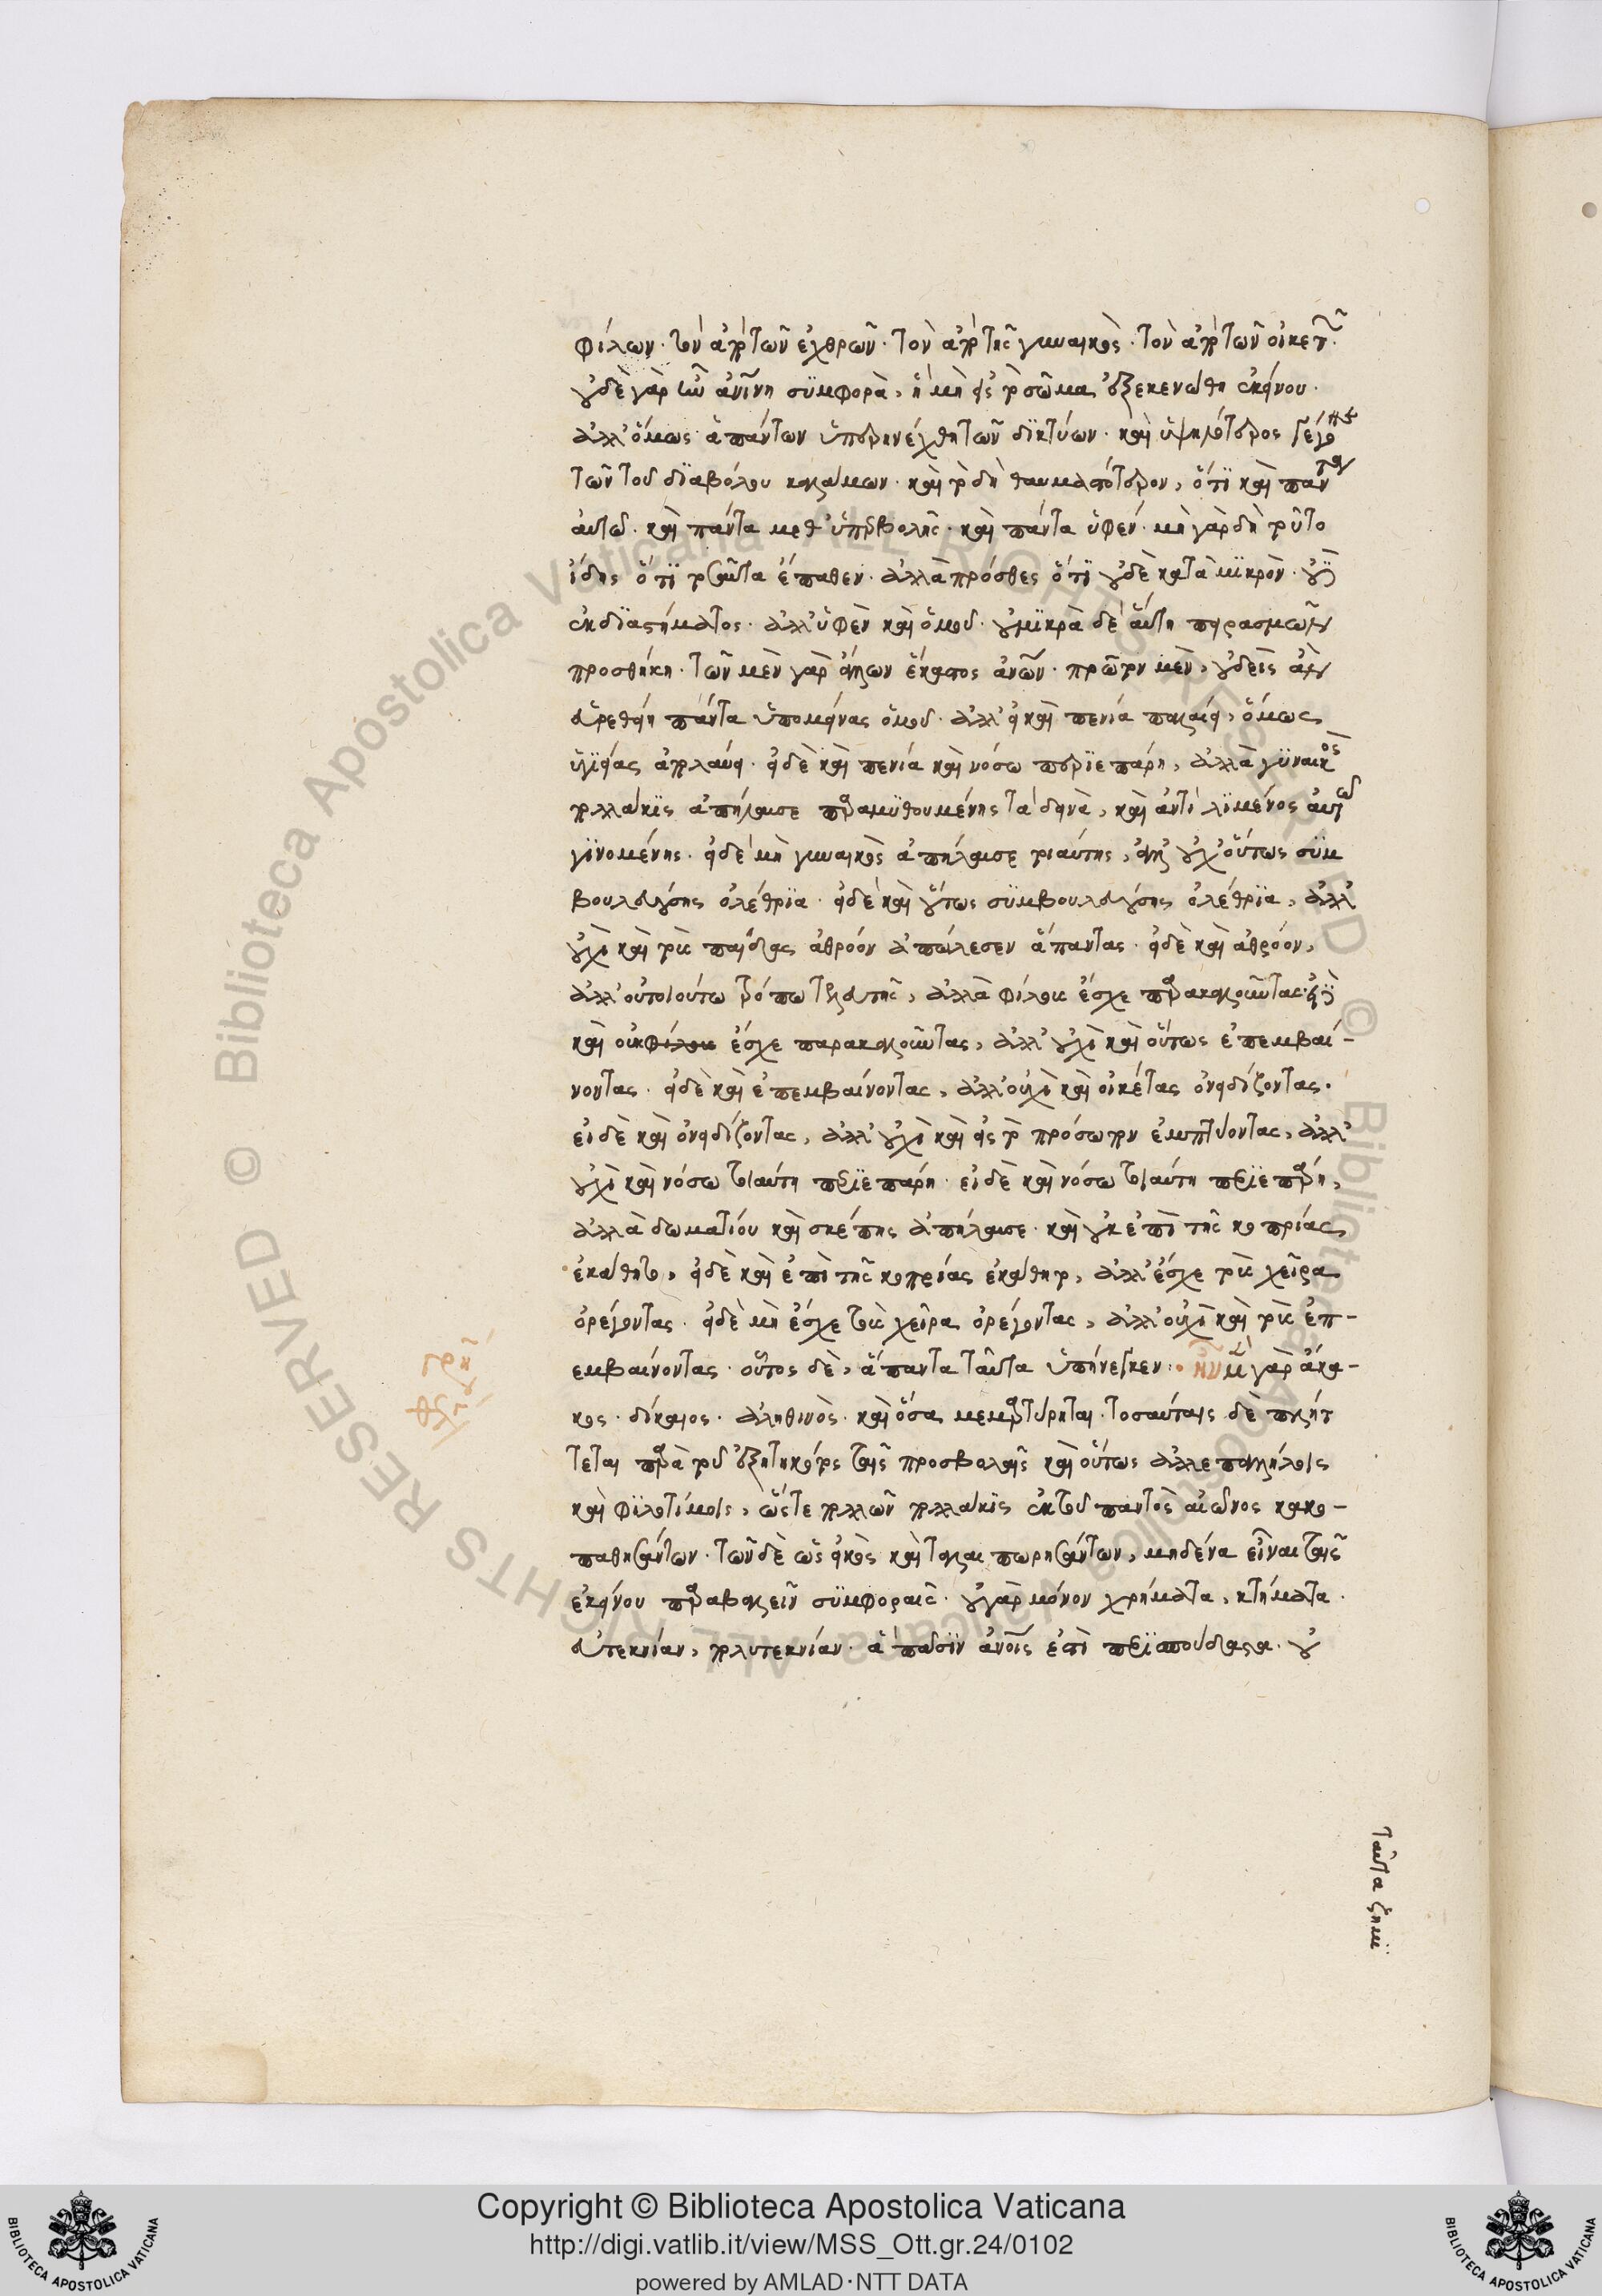 φίλων· τὸν ἀπὸ τῶν ἐχθρῶν· τὸν ἀπὸ τῆς γυναικός· τὸν ἀπὸ τῶν οἰκετῶν·
οὐδὲ γὰρ ἦν ἀνίνη συμφορὰ, ἣ μὴ εἰς τὸ σῶμα ἐξεκενώθη ἐκείνου·
ἀλλ' ὅμως ἁπάντων ὑπερηνέχθη τῶν δικτύων· καὶ ὑψηλότερος γέγονε
τῶν τοῦ διαβόλου παλαισμῶν· καὶ τὸ δὴ θαυμαστότερον, ὅτι καὶ πάντα
αὐτοῦ· καὶ πάντα μεθ' ὑπερβολῆς· καὶ πάντα ὑφέν· μὴ γὰρ δὴ τοῦτο
ἴδῃς ὅτι τοιαῦτα ἔπαθεν· ἀλλὰ πρόσθες ὅτι οὐδὲ κατὰ μικρὸν· οὐδὲ
ἐκ διαστήματος· ἀλλ' ὑφὲν καὶ ὁμοῦ· οὐ μικρὰ δὲ αὕτη πειρασμῶν
προσθήκη· τῶν μὲν γὰρ ἄλλων ἕκαστος ἀνῶν· πρῶτον μὲν, οὐδεὶς ἂν
εὑρεθείη πάντα ὑπομείνας ὁμοῦ· ἀλλ' εἰ καὶ πενία παλαίει, ὅμως
ὑγιείας ἀπολαύει· εἰ δὲ καὶ πενία καὶ νόσω περιεπάρη, ἀλλὰ γυναικὸς
πολλάκις ἀπήλαυσε παραμυθουμένης τὰ δεινὰ, καὶ ἀντὶ λιμένος αὐτῶ
γινομένης· εἰ δὲ μὴ γυναικὸς ἀπήλαυσε τοιαύτης, ἀλλ' οὐχ' οὕτως συμ
βουλευούσης ὀλέθρια· εἰ δὲ καὶ οὕτως συμβουλευούσης ὀλέθρια, ἀλλ'
οὐχὶ καὶ τοὺς παῖδας ἀθρόον ἀπώλεσεν ἅπαντας· εἰ δὲ καὶ ἀθρόον,
ἀλλ' οὐ τοιούτω τρόπω τελευτῆς, ἀλλὰ φίλους ἔσχε παρακαλοῦντας· εἰ δὲ
καὶ οὐκ φίλους ἔσχε παρακαλοῦντας, ἀλλ' οὐχὶ καὶ οὕτως ἐπεμβαί-
νοντας· εἰ δὲ καὶ ἐπεμβαίνοντας, ἀλλ' οὐχὶ καὶ οἰκέτας ὀνειδίζοντας·
εἰ δὲ καὶ ὀνειδίζοντας, ἀλλ' οὐχὶ καὶ εἰς τὸ πρόσωπον ἐμπτύοντας, ἀλλ'
οὐχὶ καὶ νόσω τοιαύτη περιεπάρη· εἰ δὲ καὶ νόσω τοιαύτη περιεπάρη,
ἀλλὰ δωματίου καὶ σκέπης ἀπήλαυσε· καὶ οὐκ ἐπὶ τῆς κοπρίας
ἐκάθητο, εἰ δὲ καὶ ἐπὶ τῆς κοπρίας ἐκάθητο, ἀλλ' ἔσχε τοὺς χεῖρα
ὀρέγοντας· εἰ δὲ μὴ ἔσχε τοὺς χεῖρα ὀρέγοντας, ἀλλ' οὐχὶ καὶ τοὺς ἐπ-
εμβαίνοντας· οὗτος δὲ, ἅπαντα ταῦτα ὑπήνεγκεν· ἦν μὲν γὰρ ἄκα-
κος· δίκαιος· ἀληθινὸς· καὶ ὅσα μεμαρτύρηται· τοσαύταις δὲ πλήτ
τεται παρὰ τοῦ ἐξῃτηκότος ταῖς προσβολαῖς καὶ οὕτως ἀλλεπαλλήλοις
καὶ φιλοτίμοις, ὥστε πολλῶν πολλάκις ἐκ τοῦ παντὸς αἰῶνος κακο-
παθησάντων· τῶν δὲ ὡς εἰκὸς καὶ ταλαιπωρησάντων, μηδένα εἶναι ταῖς
ἐκείνου παραβαλεῖν συμφοραῖς· οὐ γὰρ μόνον χρήματα, κτήματα·
εὐτεκνίαν, πολυτεκνίαν· ἃ πᾶσιν ἀνοις ἐστὶ περισπούδαστα· οὐ
ταῦτα ζημι